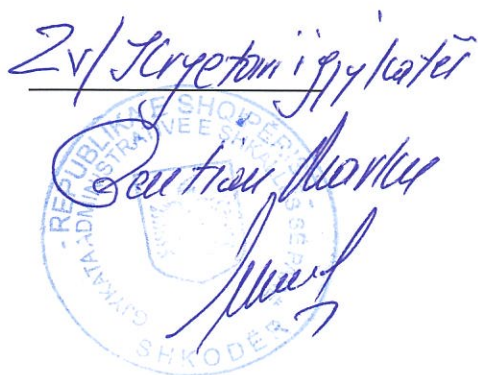 Zv/Kryetari i gjykatës
Bention Marku
REPUBLIKA E SHQIPËRISË
GJYKATA ADMINISTRATIVE E SHKALLËS SË PARË
SHKODËR